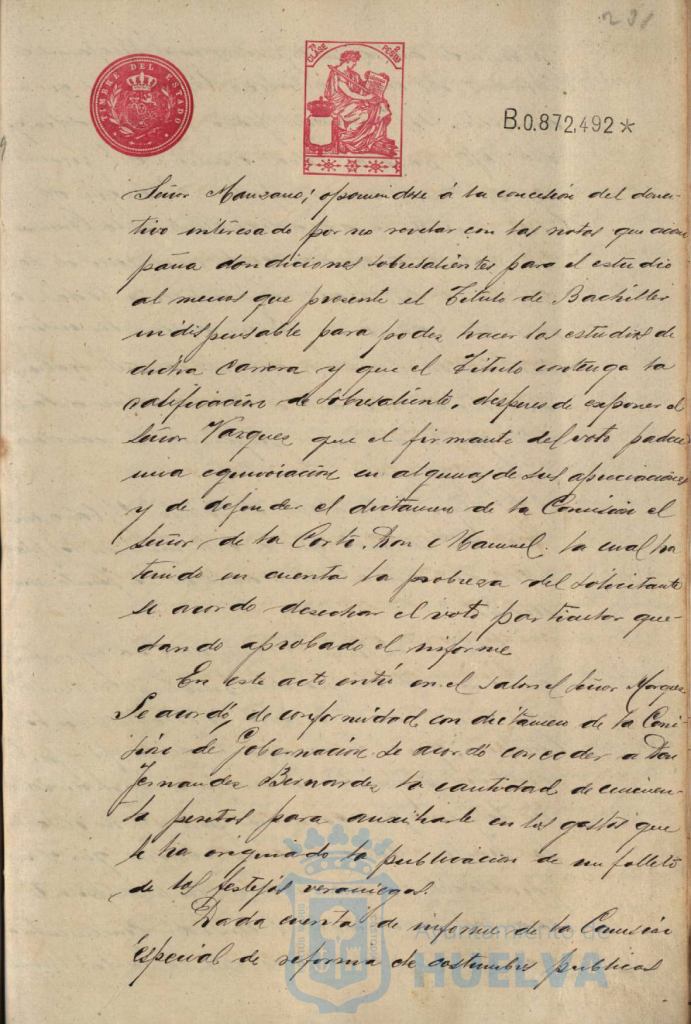 231
TIMBRE DEL ESTADO
7ª CLASE 2 PESETAS
B.0.872,492*
Señor Manzano; oponiendose á la concesión del dona-
tivo interesado por no revelar con las notas que acom
paña condiciones sobresalientes para el estudio
al menos que presente el Titulo de Bachiller
indispensable para poder hacer los estudios de
dicha carrera y que el Titulo contenga la
calificación de Sobresaliente, despues de exponer el
Señor Vazquez que el firmante del voto padece
una equivocación en algunas de sus apreciaciones
y de defender el dictamen de la Comisión el
Señor de la Corte, Don Manuel, la cual ha
tenido en cuenta la pobreza del solicitante
se acordo desechar el voto particular que-
dando aprobado el informe
En este acto entró en el salon el Señor Marquez
Se acordó, de conformidad con dictamen de la Comi-
sión de Gobernación se acordó conceder a Don
Fernandez Bernardez la cantidad de cincuen-
ta pesetas para auxiliarle en los gastos que
le ha originado la publicación de un folleto
de los festejos veraniegos.
Dada cuenta de informe de la Comisión
especial de reforma de costumbres publicas
Ayuntamiento de
HUELVA